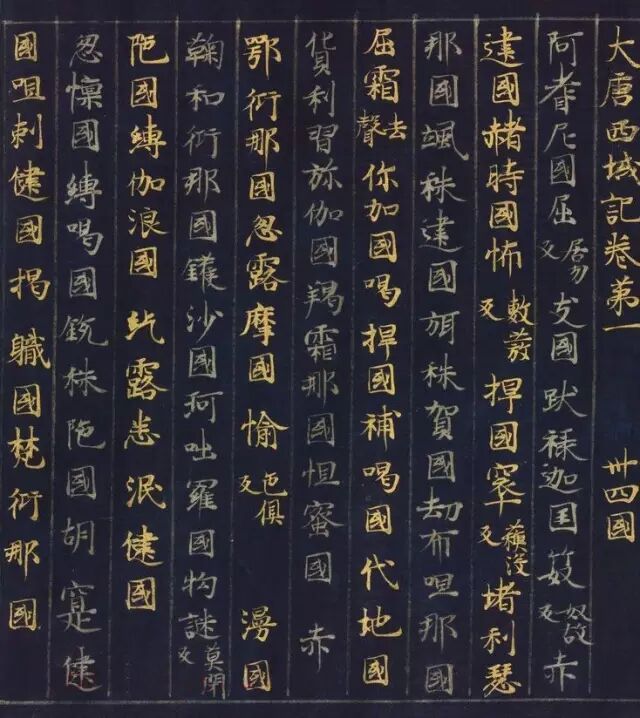 大唐西域記卷第一 卅四國
阿耆尼國屈居勿反支國跋祿迦国笯奴故反赤
建國赭時國怖敷發反捍國窣蘓没反堵利瑟
那国颯秣建國弭秣賀國劫布呾那國
屈霜去聲你加國喝捍國補喝國代地國
貨利習弥伽國羯霜那國怛蜜國 赤
鄂衍那國忽露摩國愉色俱反漫國
鞠和衍那國鑊沙國珂咄羅國拘謎莫閇反
陁國縛伽浪國紇露悉泯健國
忽懍國縛喝國銳秣陁國胡寔健
國呾剌健國揭職國梵衍那國